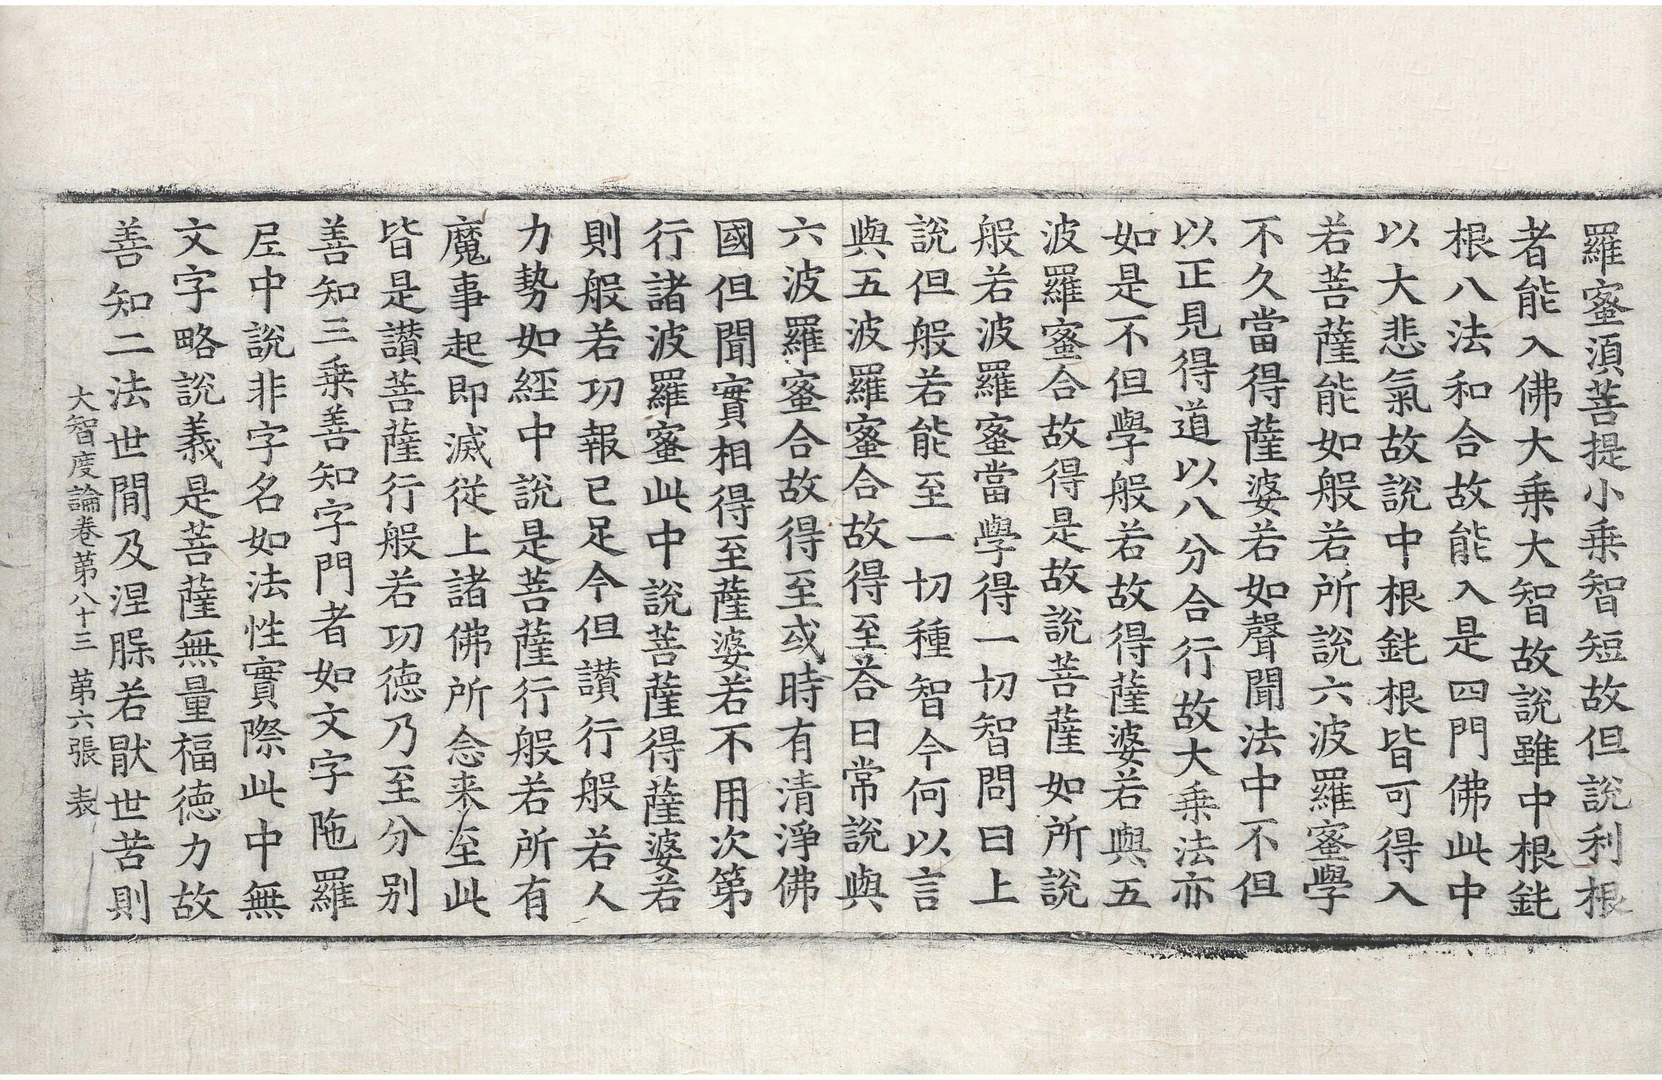 羅蜜湏菩提小乗智短故但說利根
者能入佛大乗大智故說雖中根鈍
根八法和合故能入是四門佛此中
以大悲氣故說中根鈍根皆可得入
若菩薩能如般若所說六波羅蜜學
不久當得薩婆若如聲聞法中不但
以正見得道以八分合行故大乗法亦
如是不但學般若故得薩婆若與五
波羅蜜合故得是故說菩薩如所說
般若波羅蜜當學得一切智問曰上
說但般若能至一切種智今何以言
與五波羅蜜合故得至荅曰常說與
六波羅蜜合故得至或時有清淨佛
國但聞實相得至薩婆若不用次第
行諸波羅蜜此中說菩薩得薩婆若
則般若功報已足今但讃行般若人
力勢如經中說是菩薩行般若所有
魔事起即滅従上諸佛所念来至此
皆是讃菩薩行般若功徳乃至分别
善知三乗善知字門者如文字陁羅
尼中說非字名如法性實際此中無
文字略說義是菩薩無量福徳力故
善知二法世閒及涅槃若猒世苦則
大智度論卷第八十三　第六張　表